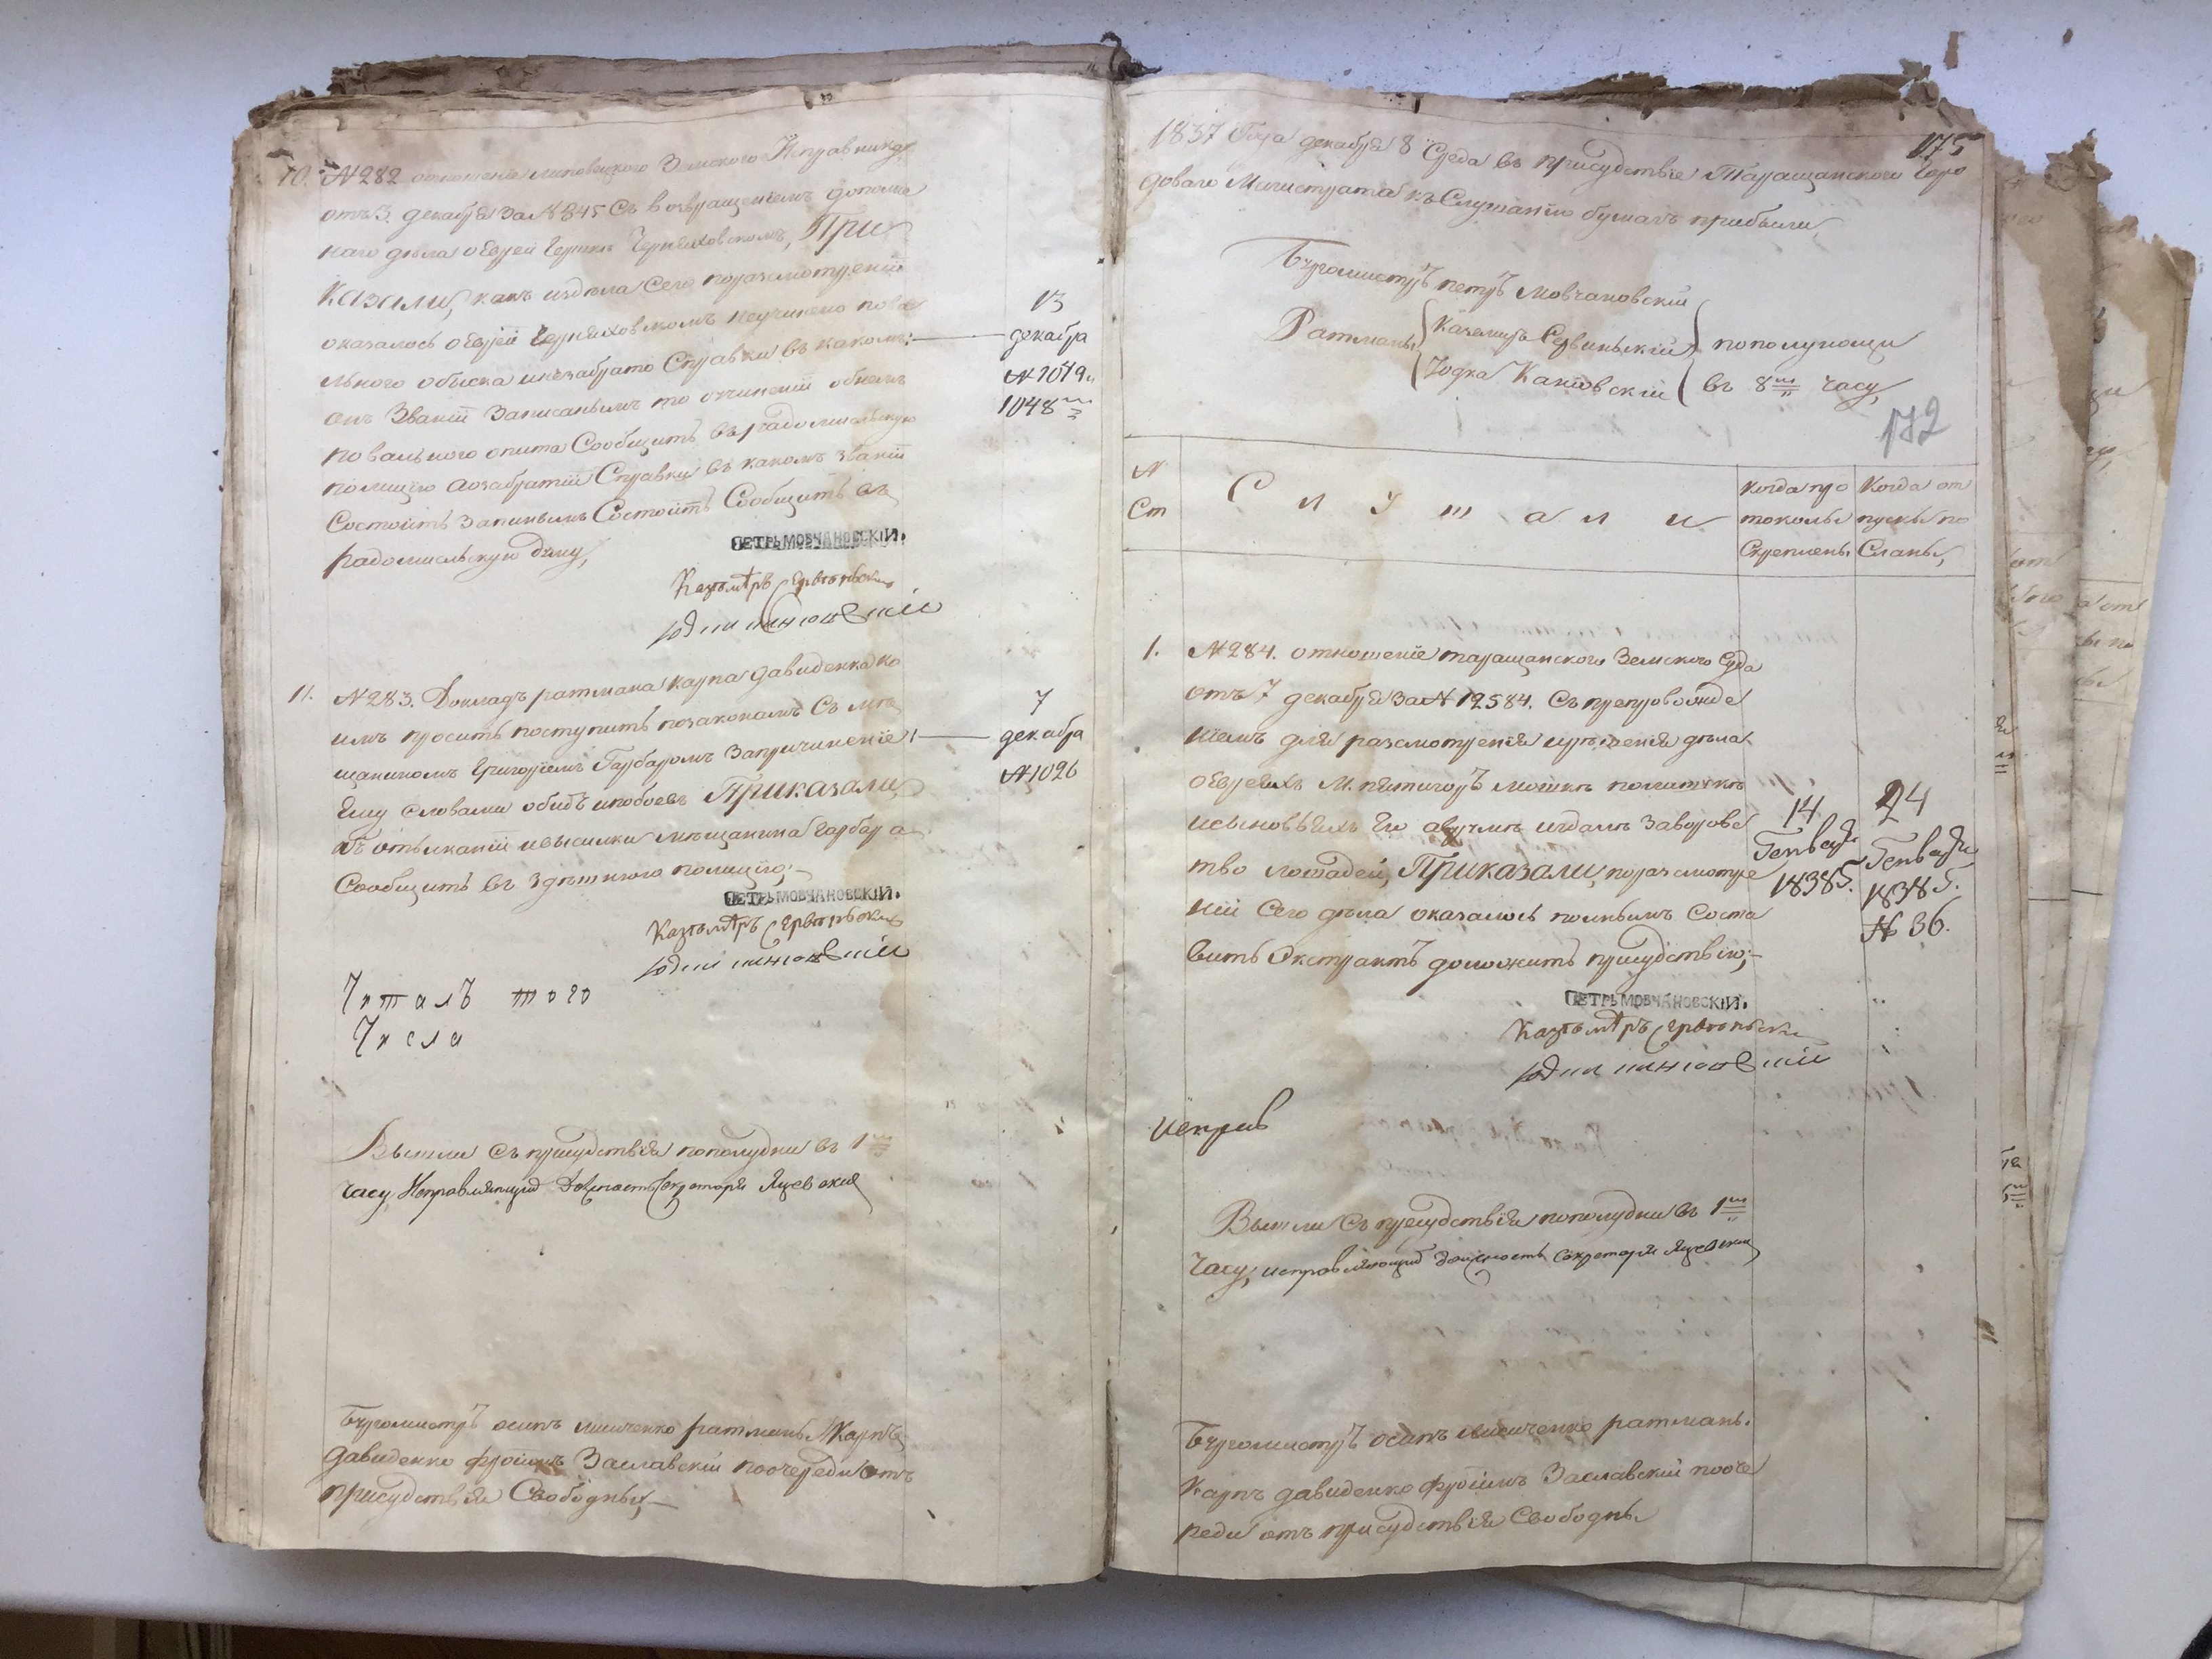 10. №282 отношение липовецкого Земского Исправника
отъ 3. декабря За №845 Съ возвращениемъ дополне
наго дѣла о Еврей Гершкѣ Черняховскомъ, При
казали, какъ издѣла Сего поразсмотреніи
оказалось о Еврей Черняховскомъ неучинено пова
льного обыска инезабрато Справки въ какомъ:
онъ Званіи Записанымъ то очиненіи обнемъ
повального опита Сообщить въ радомысльскую
полицію аозабратіи Справки въ какомъ званіи
Состоитъ Записнымъ Состоитъ Сообщить въ
радомисльскую думу,
13
декабра
№ 1049 и
1048
ПЕТРЪ МОВЧАНОВСКІЙ.
11. №283. Докладъ ратмана карпа давиденка ко
имъ проситъ поступить позаконамъ Съ мѣ
щаниномъ Григоріемъ Гарбаромъ Запричиненіе
Ему словами обидъ ипобоевъ Приказали,
объ отысканіи ивысилки мѣщанина Гарбара
Сообщить въ здѣшнюю полицію;
7
декабра
№1026
ПЕТРЪ МОВЧАНОВСКІЙ.
Читалъ того
Числа
Вышли съ присудствія пополудни въ 1
часу, Исправляющій Должность Секретаря Яцевскій
Бургомистръ осипъ лисиченко ратманы Карпъ
давиденко фроимъ Заславскій поочереди отъ
присудствія Свободны,
175
1837 Года декабря 8 Среда въ присудствіе Таращанского Горо
доваго Магистрата къ Слушанію бумагъ прибыли
Бургомистръ петръ Мовчановскій
Ратманы Казимиръ Сервинскій пополунощи
Іодка Каніовскій въ 8 часу,
172
№
Ст
Слушали
Когда про
токолы
Скреплены
Когда от
пуски по
Сланы,
1. №284. отношеніе таращанского Земского Суда
отъ 7 декабря За № 12584. Съ препровожде
ніемъ для разсмотренія ирѣшенія дѣла
оЕвреяхъ М. пятигоръ Мошкѣ
исыновьяхъ Его заворовс
тво лошадей, Приказали, поразсмотре
ніи Сего дѣла оказалось полнымъ Соста
вить Экстрактъ доложить присудствію;
14
Генваря
1838 г.
24
Генваря
1838 г.
№ 36.
ПЕТРЪ МОВЧАНОВСКІЙ.
Исправ
Вышли Съ присудствія пополудни въ 1
Часу, исправляющій должность Секретаря Яцевскій
Бургомистръ осипъ лисиченко ратманы.
Карпъ давиденко фроимъ Заславскій пооче
реди отъ присудствія Свободны